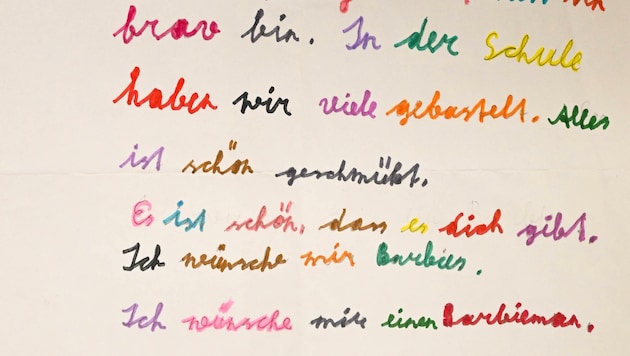 brav bin. In der Schule
haben wir viele gebastelt. Alles
ist schön geschmükt.
Es ist schön, dass es dich gibt.
Ich wünsche mir Barbies.
Ich wünsche mir einen Barbieman.